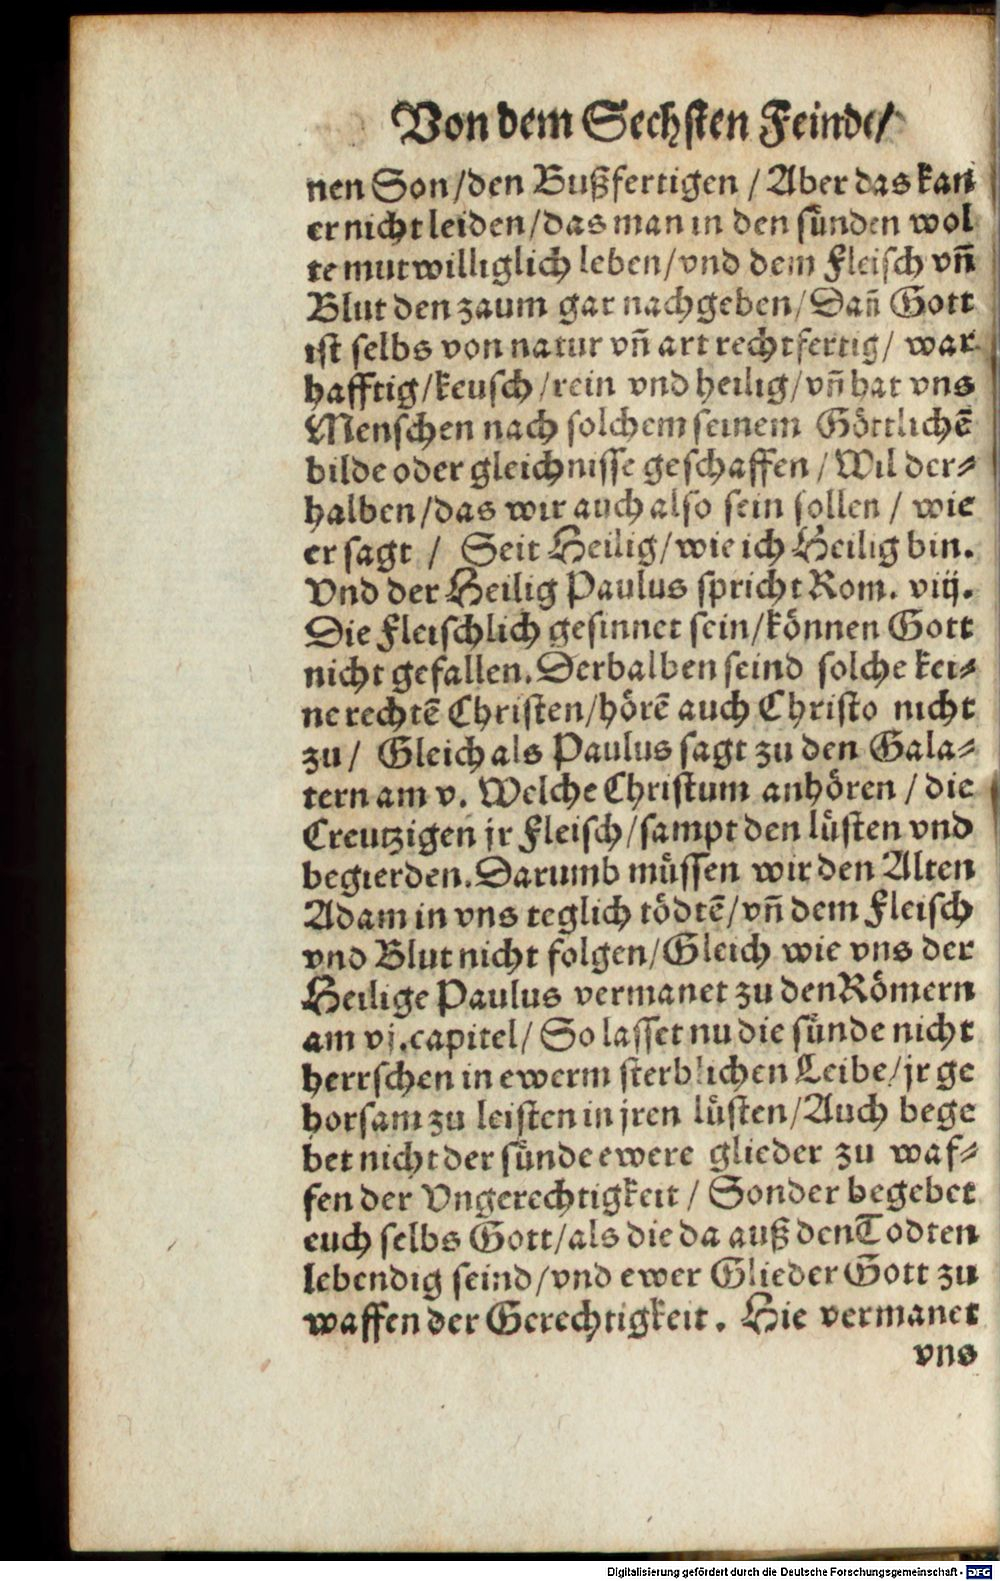 Von dem Sechsten Feinde/
nen Son/den Bußfertigen / Aber das kan
er nicht leiden/das man in den sünden wol
te mutwilliglich leben/vnd dem Fleisch vñ
Blut den zaum gar nachgeben/Dañ Gott
ist selbs von natur vñ art rechtfertig/ war
hafftig/keusch/rein vnd heilig/vñ hat vns
Menschen nach solchem seinem Göttlichẽ
bilde oder gleichnisse geschaffen / Wil der⸗
halben/das wir auch also sein sollen / wie
er sagt / Seit Heilig/wie ich Heilig bin.
Vnd der Heilig Paulus spricht Rom. viij.
Die Fleischlich gesinnet sein/können Gott
nicht gefallen. Derhalben seind solche kei⸗
ne rechtẽ Christen/hörẽ auch Christo nicht
zu/ Gleich als Paulus sagt zu den Gala⸗
tern am v. Welche Christum anhören / die
Creutzigen jr Fleisch/sampt den lüsten vnd
begierden. Darumb müssen wir den Alten
Adam in vns teglich tödtẽ/vñ dem Fleisch
vnd Blut nicht folgen/Gleich wie vns der
Heilige Paulus vermanet zu den Römern
am vj. capitel/ So lasset nu die sünde nicht
herrschen in ewerm sterblichen Leibe/jr ge
horsam zu leisten in jren lüsten/Auch bege
bet nicht der sünde ewere glieder zu waf⸗
fen der Vngerechtigkeit / Sonder begebet
euch selbs Gott/als die da auß den Todten
lebendig seind/vnd ewer Glieder Gott zu
waffen der Gerechtigkeit. Hie vermanet
vns
Digitalisierung gefördert durch die Deutsche Forschungsgemeinschaft - DFG